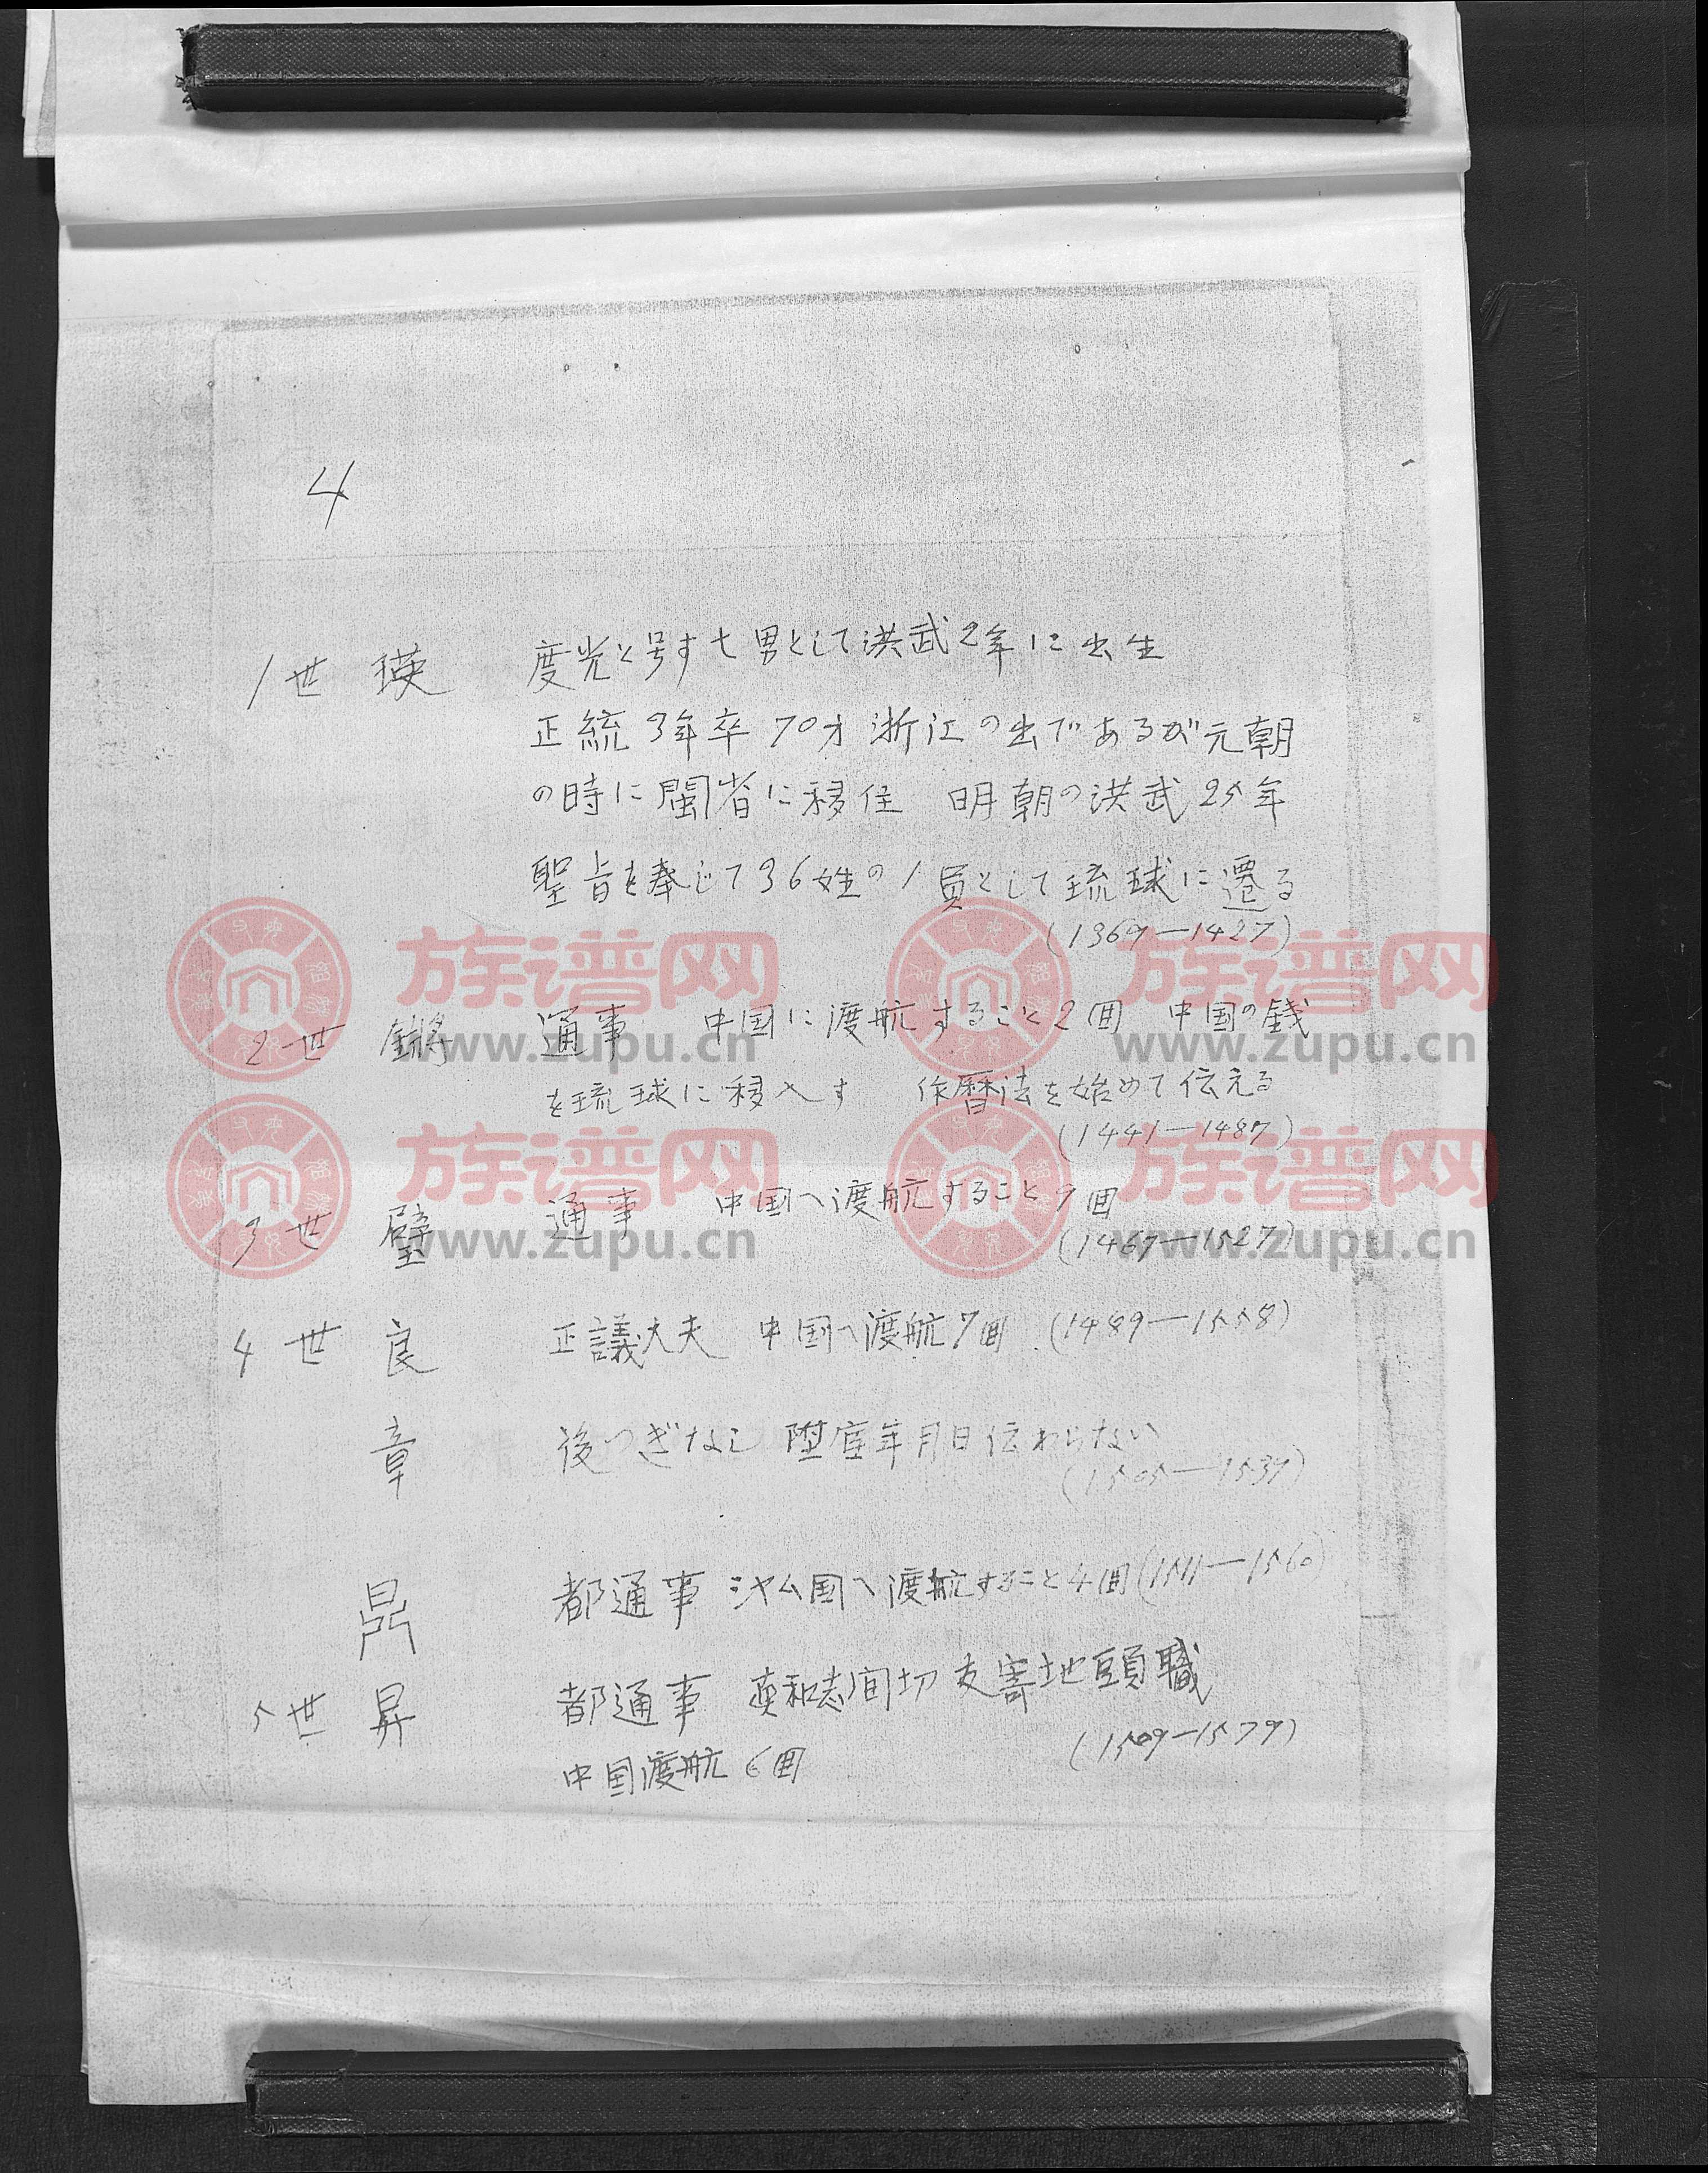 4
1世 瑛 度光と号す七男として洪武2年に出生
正統3年卒 70才 浙江の出であるが元朝
の時に閩省に移住 明朝の洪武25年
聖旨を奉じて36姓の1員として琉球に遷る
(1369—1427)
2世 鏘 通事 中国に渡航すること2回 中国の銭
を琉球に移入す 作暦法を始めて伝える
(1441—1487)
3世 璧 通事 中国へ渡航すること9回
(1467—1527)
4世 良 正議大夫 中国へ渡航7回 (1489—1558)
章 後つぎなし 年月日伝わらない
(1505—1537)
鼎 都通事 シヤム国へ渡航すること4回(1511—1560)
5世 昇 都通事 真和志間切 支寄地頭職
(1509—1579)
中国渡航 6回
族谱网 www.zupu.cn
族谱网 www.zupu.cn
族谱网 www.zupu.cn
族谱网 www.zupu.cn